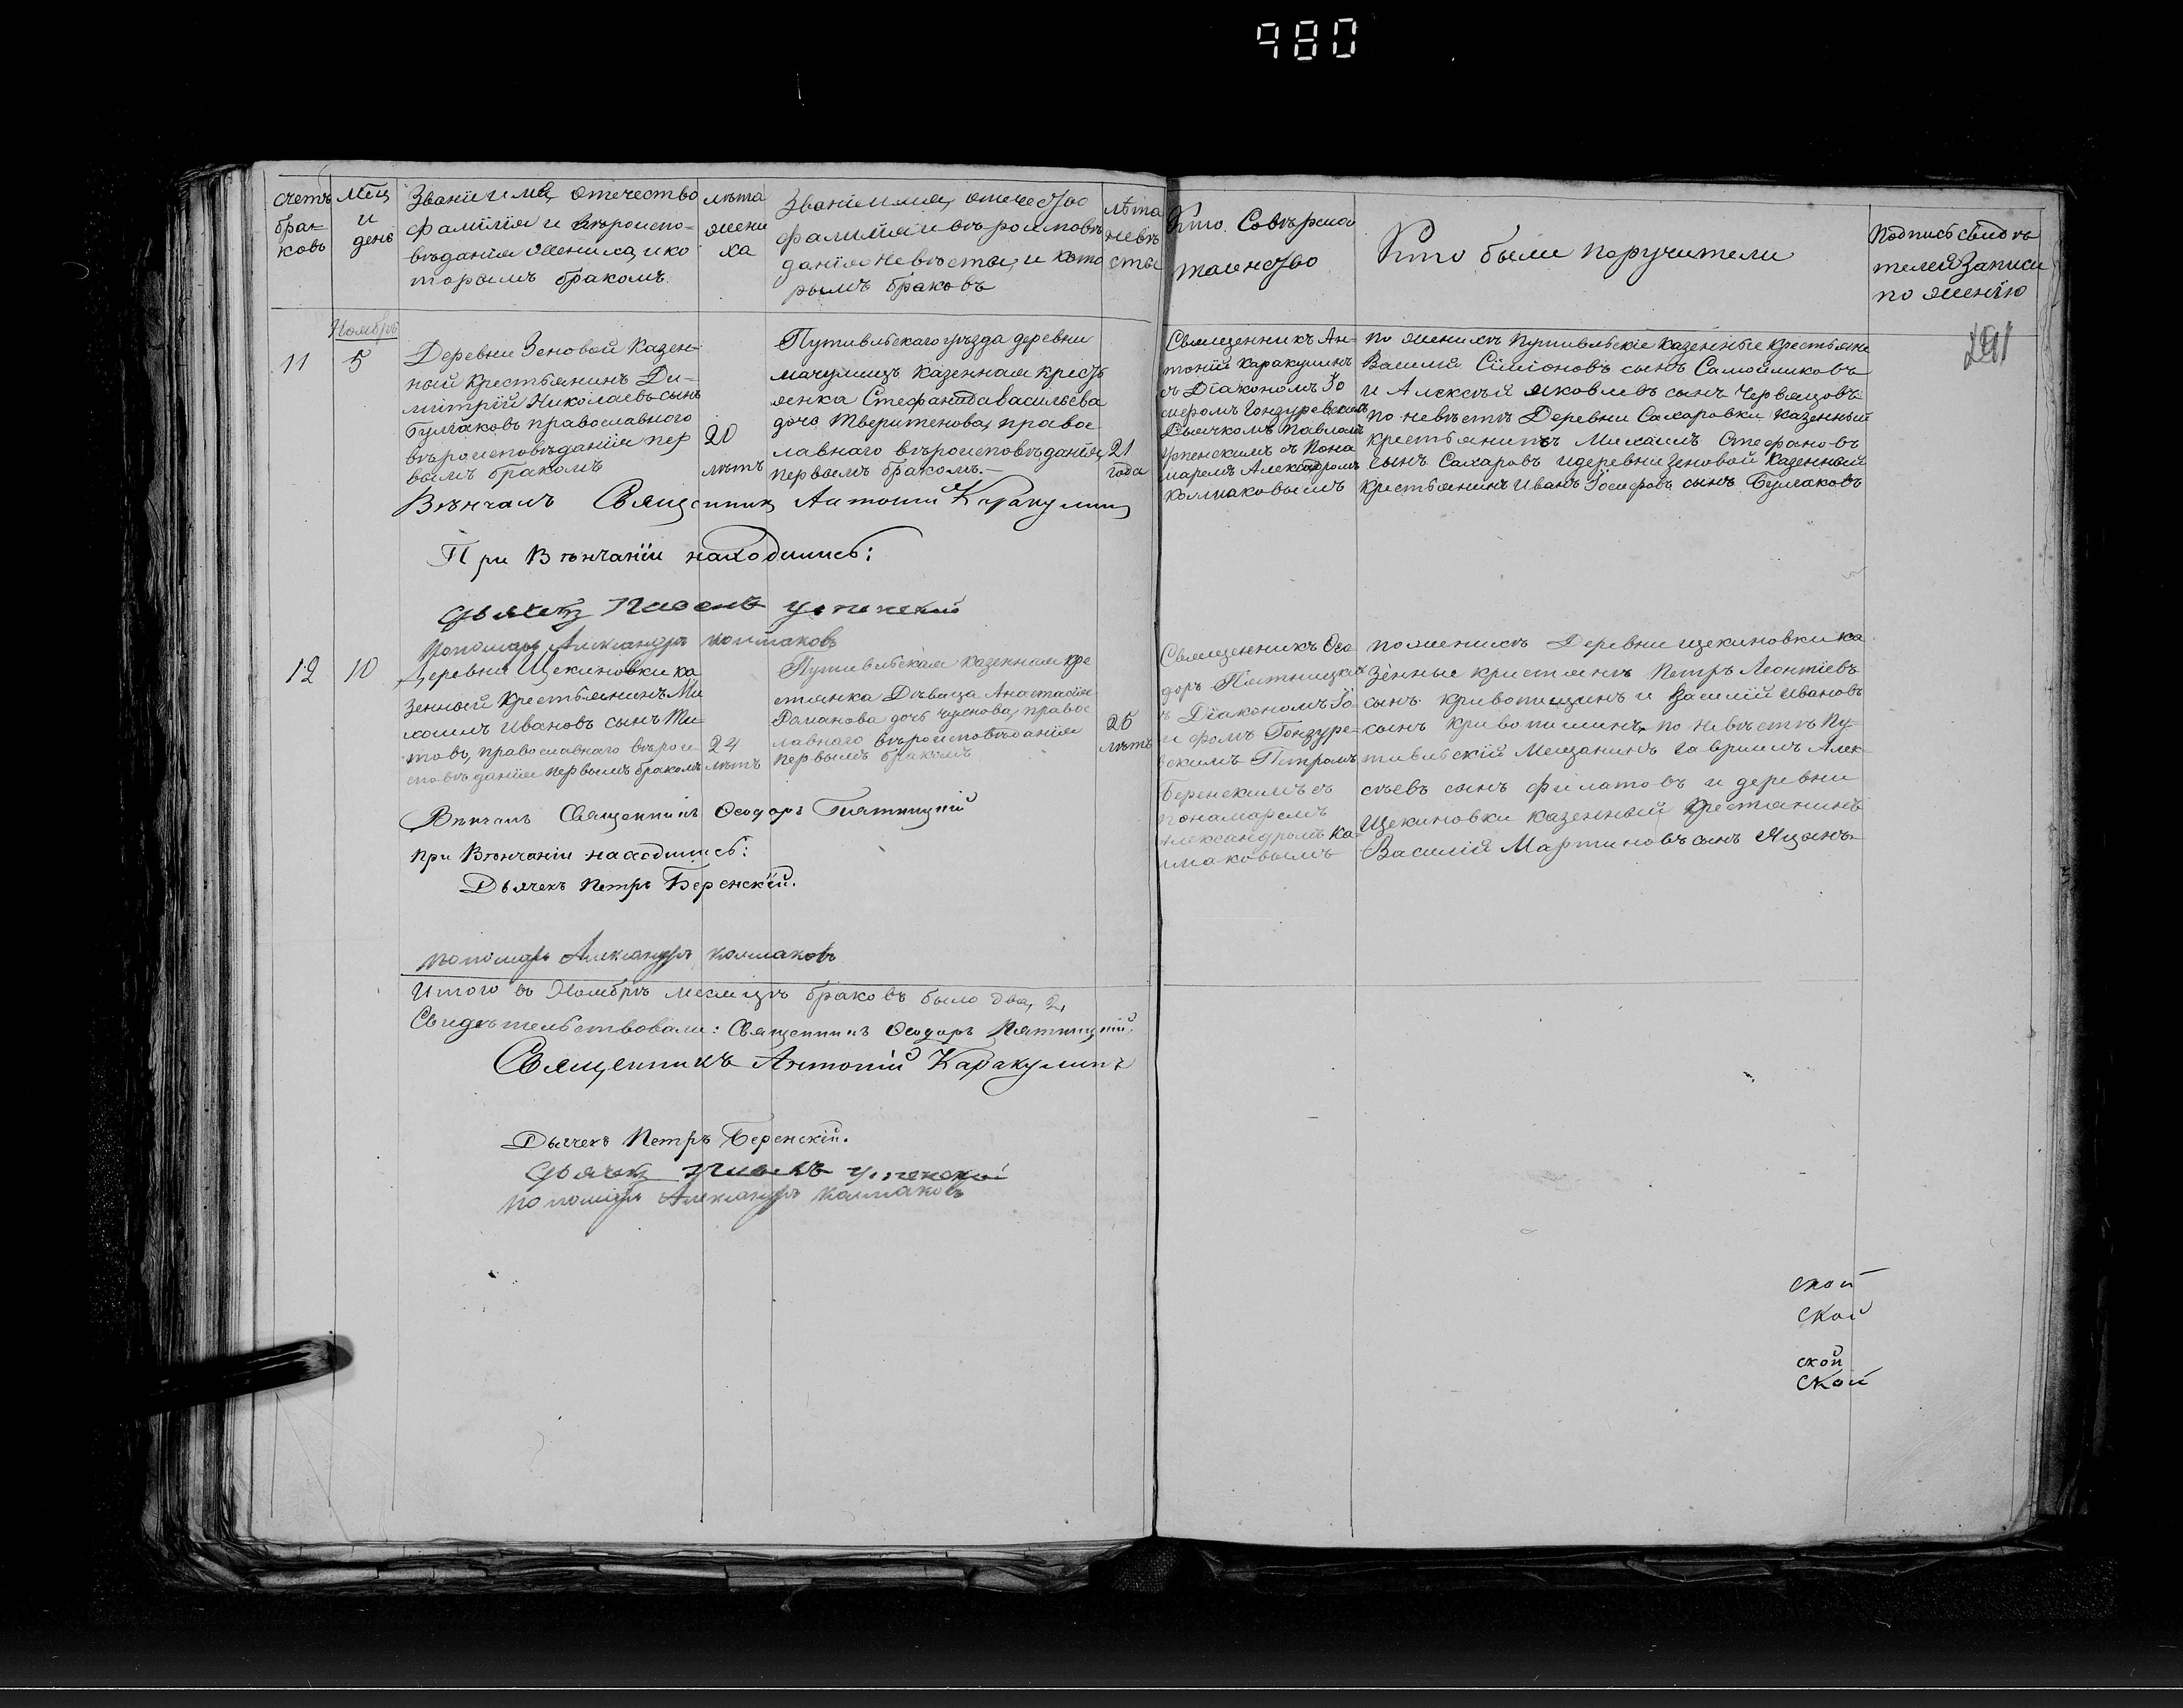 980
счетъ
бра-
ковъ
Мсц
и
день
Званіе имя, отечество
фамилія и вѣроиспо-
вѣданія жениха, и ко
торымъ бракомъ.
лѣта
жени
ха
Званіе имя, отечество
фамилія и вѣроисповѣ
данія невѣсты, и кото
рымъ бракомъ
лѣта
невѣ
сты
Кто Совѣршалъ
таинство
Кто были поручители
Подпись свидѣ
телей записи
по желанію
291
Ноябрь
11
5
Деревни Зеновой Казен-
ный Крестьянинъ Ди-
митрій Николаевъ сынъ
Булгаковъ православнаго
вѣроисповѣданія пер
вымъ бракомъ
20
лѣтъ
Путивльскаго уѣзда деревни
мачулищъ казенная кресть
янка Стефанида васильева
дочь Тверитенова, правос
лавнаго вѣроисповѣданія,
первымъ бракомъ.-
21
года
Священникъ Ан-
тоній Каракулинъ
съ Діакономъ Іо
сифомъ Гонзуревскимъ
Дьячкомъ Павломъ
Успенскимъ съ Пона
маремъ Александромъ
Колмаковымъ
по женихѣ Путивльскіе казенные крестьяне
Василій Симіоновъ сынъ Самойликовъ
и Алексѣй яковлевъ сынъ Червяцовъ
по невѣстѣ Деревни Сахаровки казенный
крестьянинъ Михаилъ Стефановъ
сынъ Сахаровъ и деревни Зеновой казенный
крестьянинъ Иванъ Іосифовъ сынъ Булгаковъ
Вѣнчалъ Священникъ Антоній Каракулинъ
При Вѣнчаніи находились:
Дьячекъ Павелъ Успенскій
Пономарь Александръ Колмаковъ
12
10
Деревни Щекиновки ка
зенный Крестьянинъ Ми
хаилъ Ивановъ сынъ Ти-
товъ, православнаго вѣрои-
сповѣданія первымъ бракомъ
24
лѣтъ
Путивльская казенная кре
стянка Дѣвица Анастасія
Романова дочь Чуенова, правос
лавнаго вѣроисповѣданія
первымъ бракомъ
25
лѣтъ
Священникъ Ѳео
доръ Пятницкій
съ Діакономъ Іо-
сифомъ Гонзуре-
вскимъ Петромъ
Беренскимъ съ
понамаремъ
Александромъ Ка-
лмаковымъ
по женихѣ Деревни щекиновки ка
зенные кристяне Петръ Леонтіевъ
сынъ кривопишинъ и Василій Ивановъ
сынъ кривопишинъ, по невѣстѣ Пу-
тивльскій Мещанинъ Гавриилъ Алек-
сѣевъ сынъ филатовъ и деревни
Щекиновки казенный Крестянинъ
Василій Мартиновъ сынъ Яцынъ
Вѣнчалъ Священникъ Ѳеодоръ Пятницкій
при Вѣнчаніи находились:
Дьячекъ Петръ Беренскій.
пономарь Александръ колмаковъ
Итого въ Ноябрѣ месяцѣ браковъ было два, 2,
Свидѣтельствовали: Священникъ Ѳеодоръ Пятницкій.
Священникъ Антоній Каракулинъ
Дьячекъ Петръ Беренскій.
Дьячекъ Павелъ Успенскій
пономарь Александръ колмаковъ
ской
ской
ской
ской